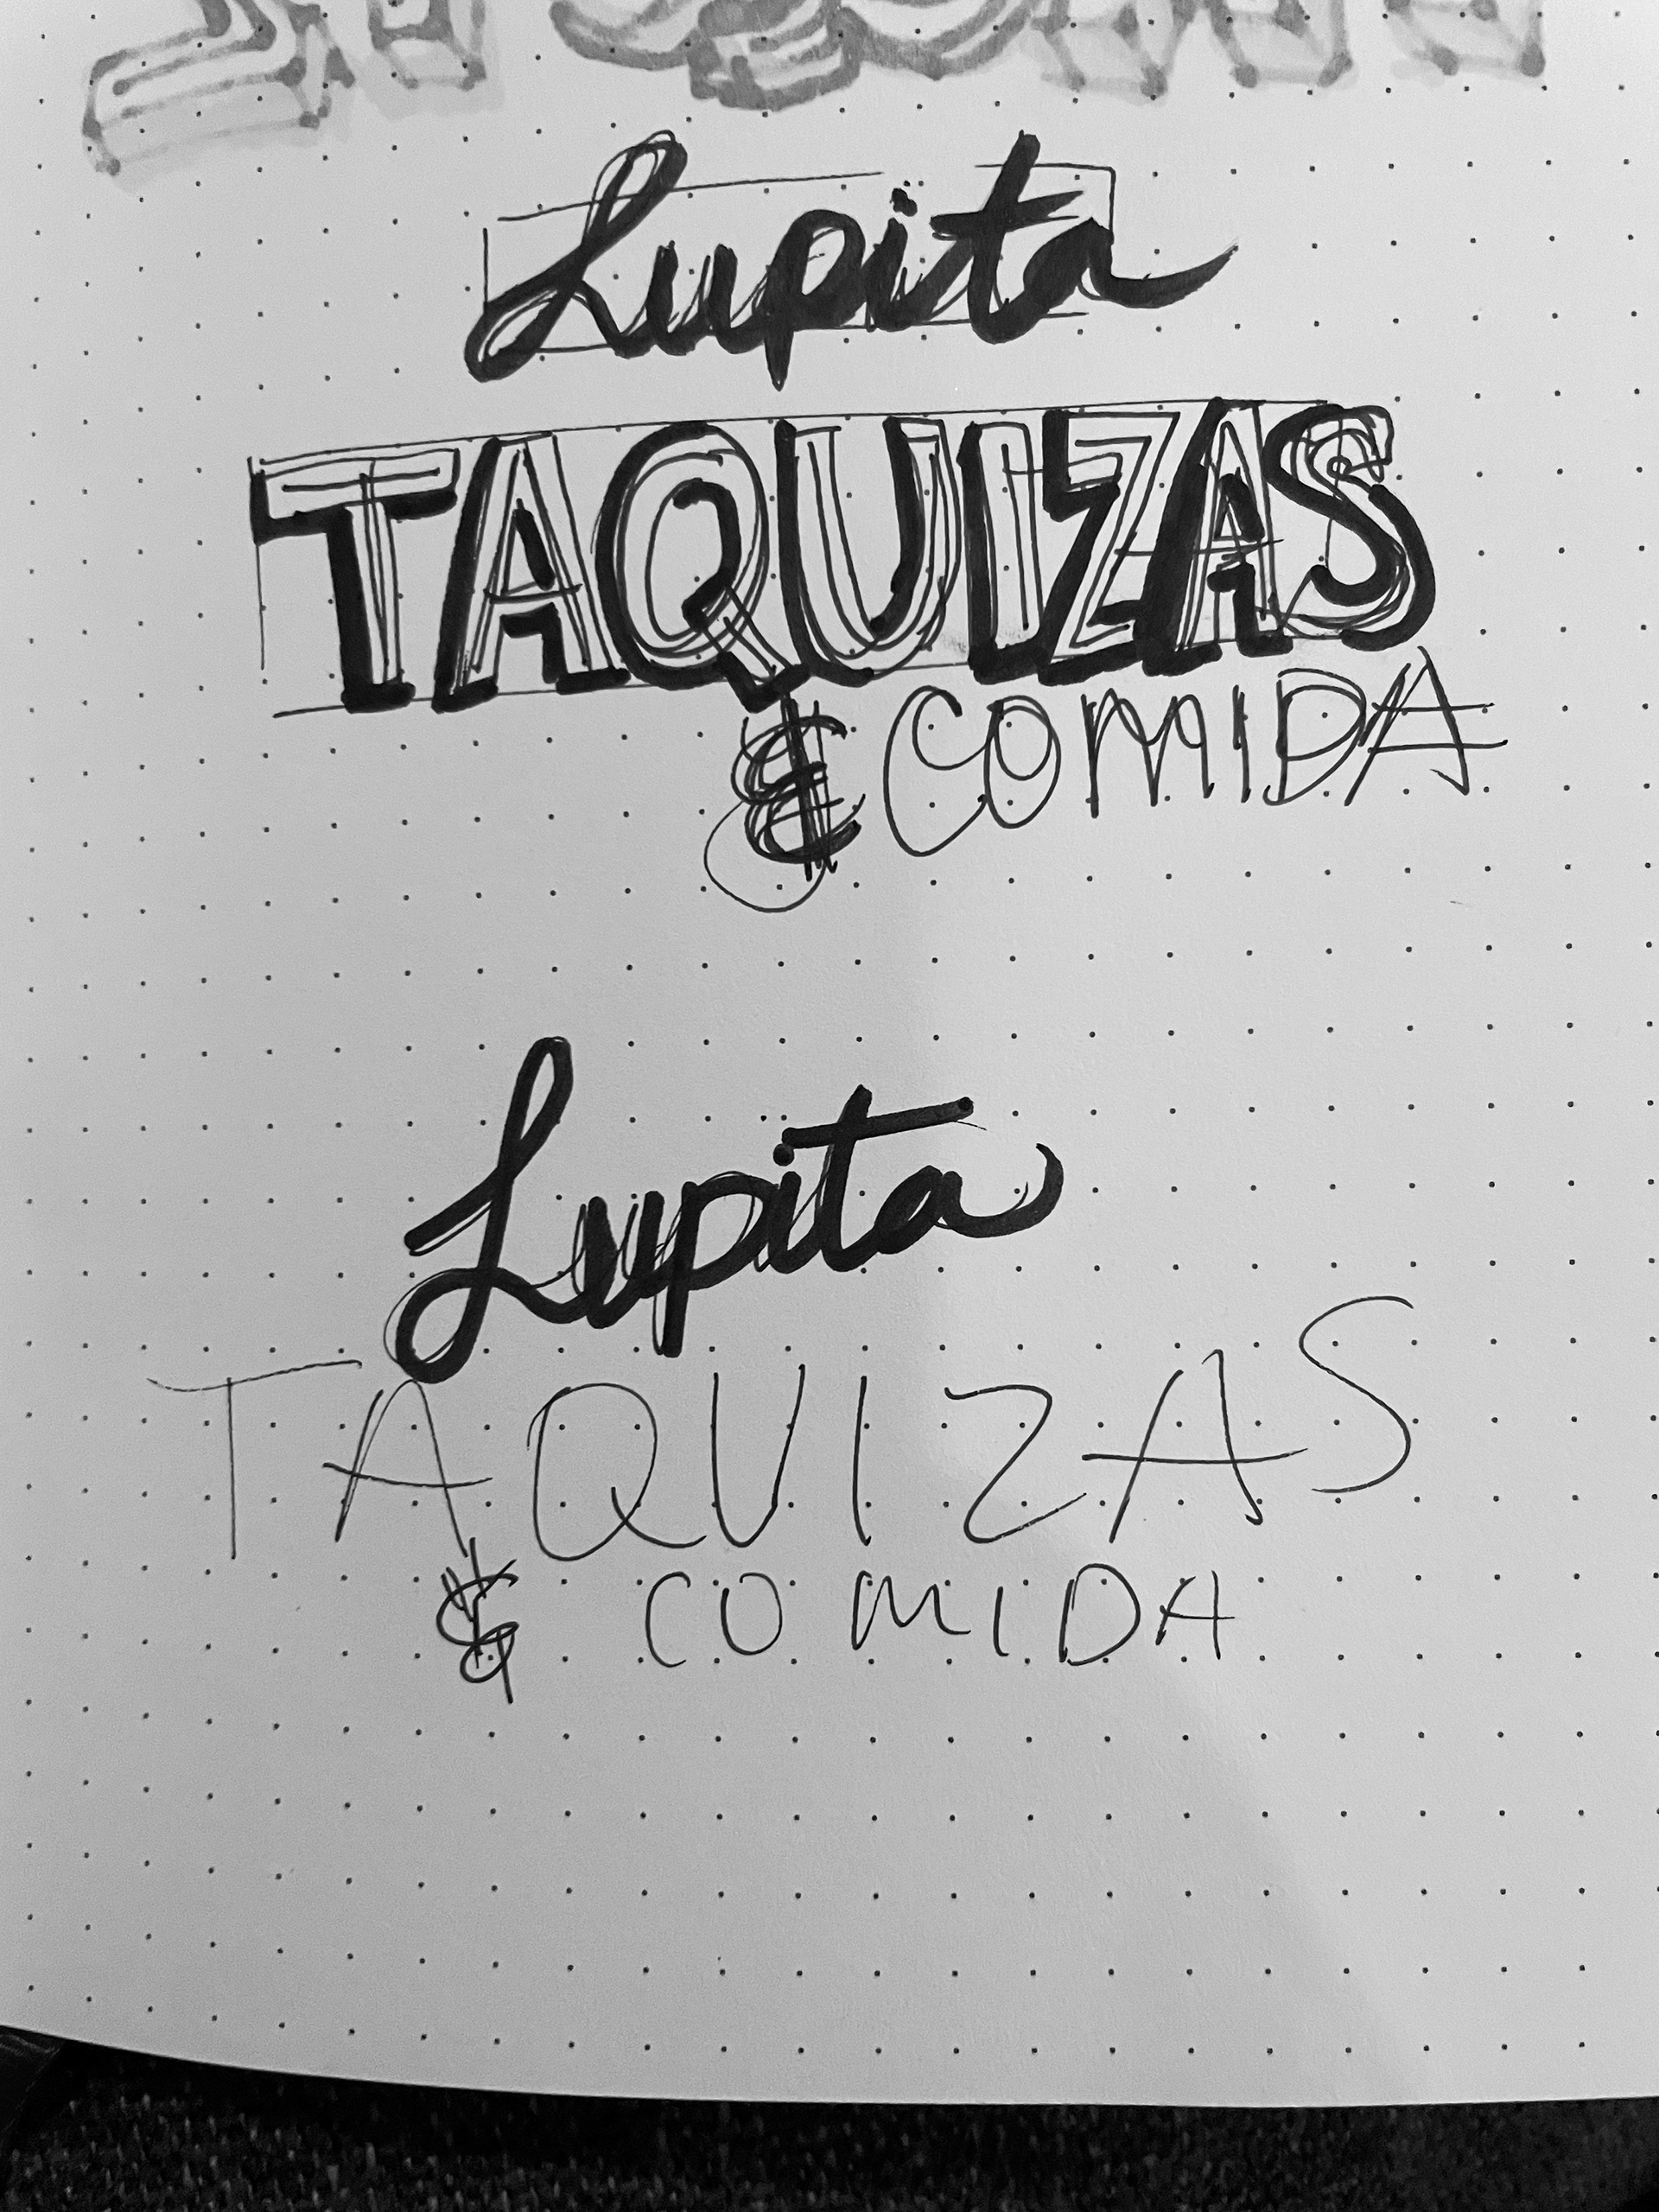 Lupita
TAQUIZAS
& COMIDA
Lupita
TAQUIZAS
& COMIDA